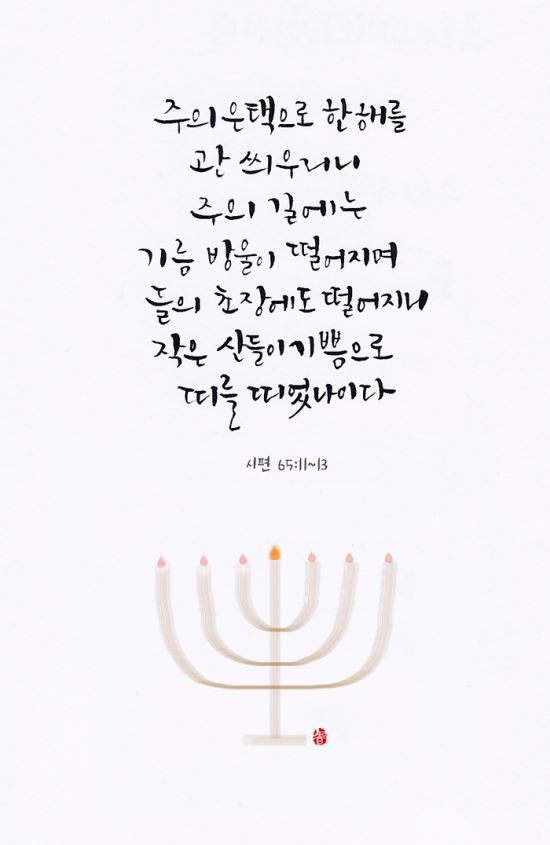 주의 은택으로 한 해를
관 씌우시니
주의 길에는
기름 방울이 떨어지며
들의 초장에도 떨어지니
작은 산들이 기쁨으로
띠를 띠었나이다
시편 65:11~13